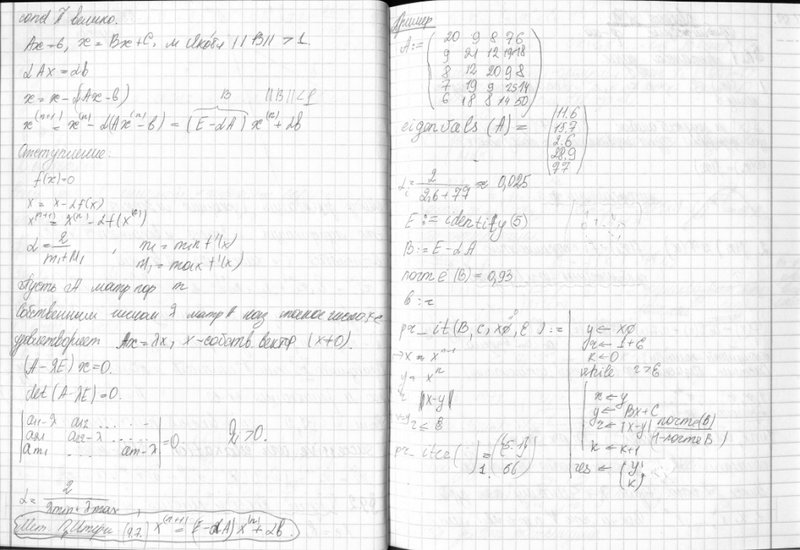 cond A велико.
Ax=b, x = Bx+C, м Якоби ||B|| > 1.
αAx = αb
x = x - α(Ax - b) B ||B|| < 1
x^(n+1) = x^(n) - α(Ax^(n) - b) = (E - αA) x^(n) + αb
Отступление.
f(x)=0
x = x - αf(x)
x^(n+1) = x^(n) - αf(x^(n))
α = 2/(m₁+M₁), m₁ = min f'(x)
M₁ = max f'(x)
Пусть A матр пор m
Собственным числом λ матр A наз такое число
удовлетворяет Ax = λx, x - собств. вектр (x≠0).
(A - λE) x = 0.
det (A - λE) = 0.
|a₁₁-λ a₁₂ .....
a₂₁ a₂₂-λ .....
a_m1 ... a_mm-λ| = 0 λᵢ > 0.
α = 2/(λmin + λmax),
Мет. П.Итери x^(n+1) = (E - αA) x^(n) + αb
Пример
A :=
20 9 8 7 6
9 21 12 19 18
8 12 20 9 8
7 19 9 25 14
6 18 8 14 50
eigenvals (A) =
11.6
15.7
2.6
28.9
77
α := 2/(2,6 + 77) ≈ 0,025
E := identity (5)
B := E - αA
norme (B) = 0,93
pr_it(B, c, x0, ε) := y ← x0
r ← 1+ε
k ← 0
while r > ε
x ← y
y ← Bx + C
r ← |x-y| norme(B)/(1-norme B)
k ← k+1
res ← (y
k)
→ x = x^(n-1)
y = x^n
||x-y||
r ≤ ε